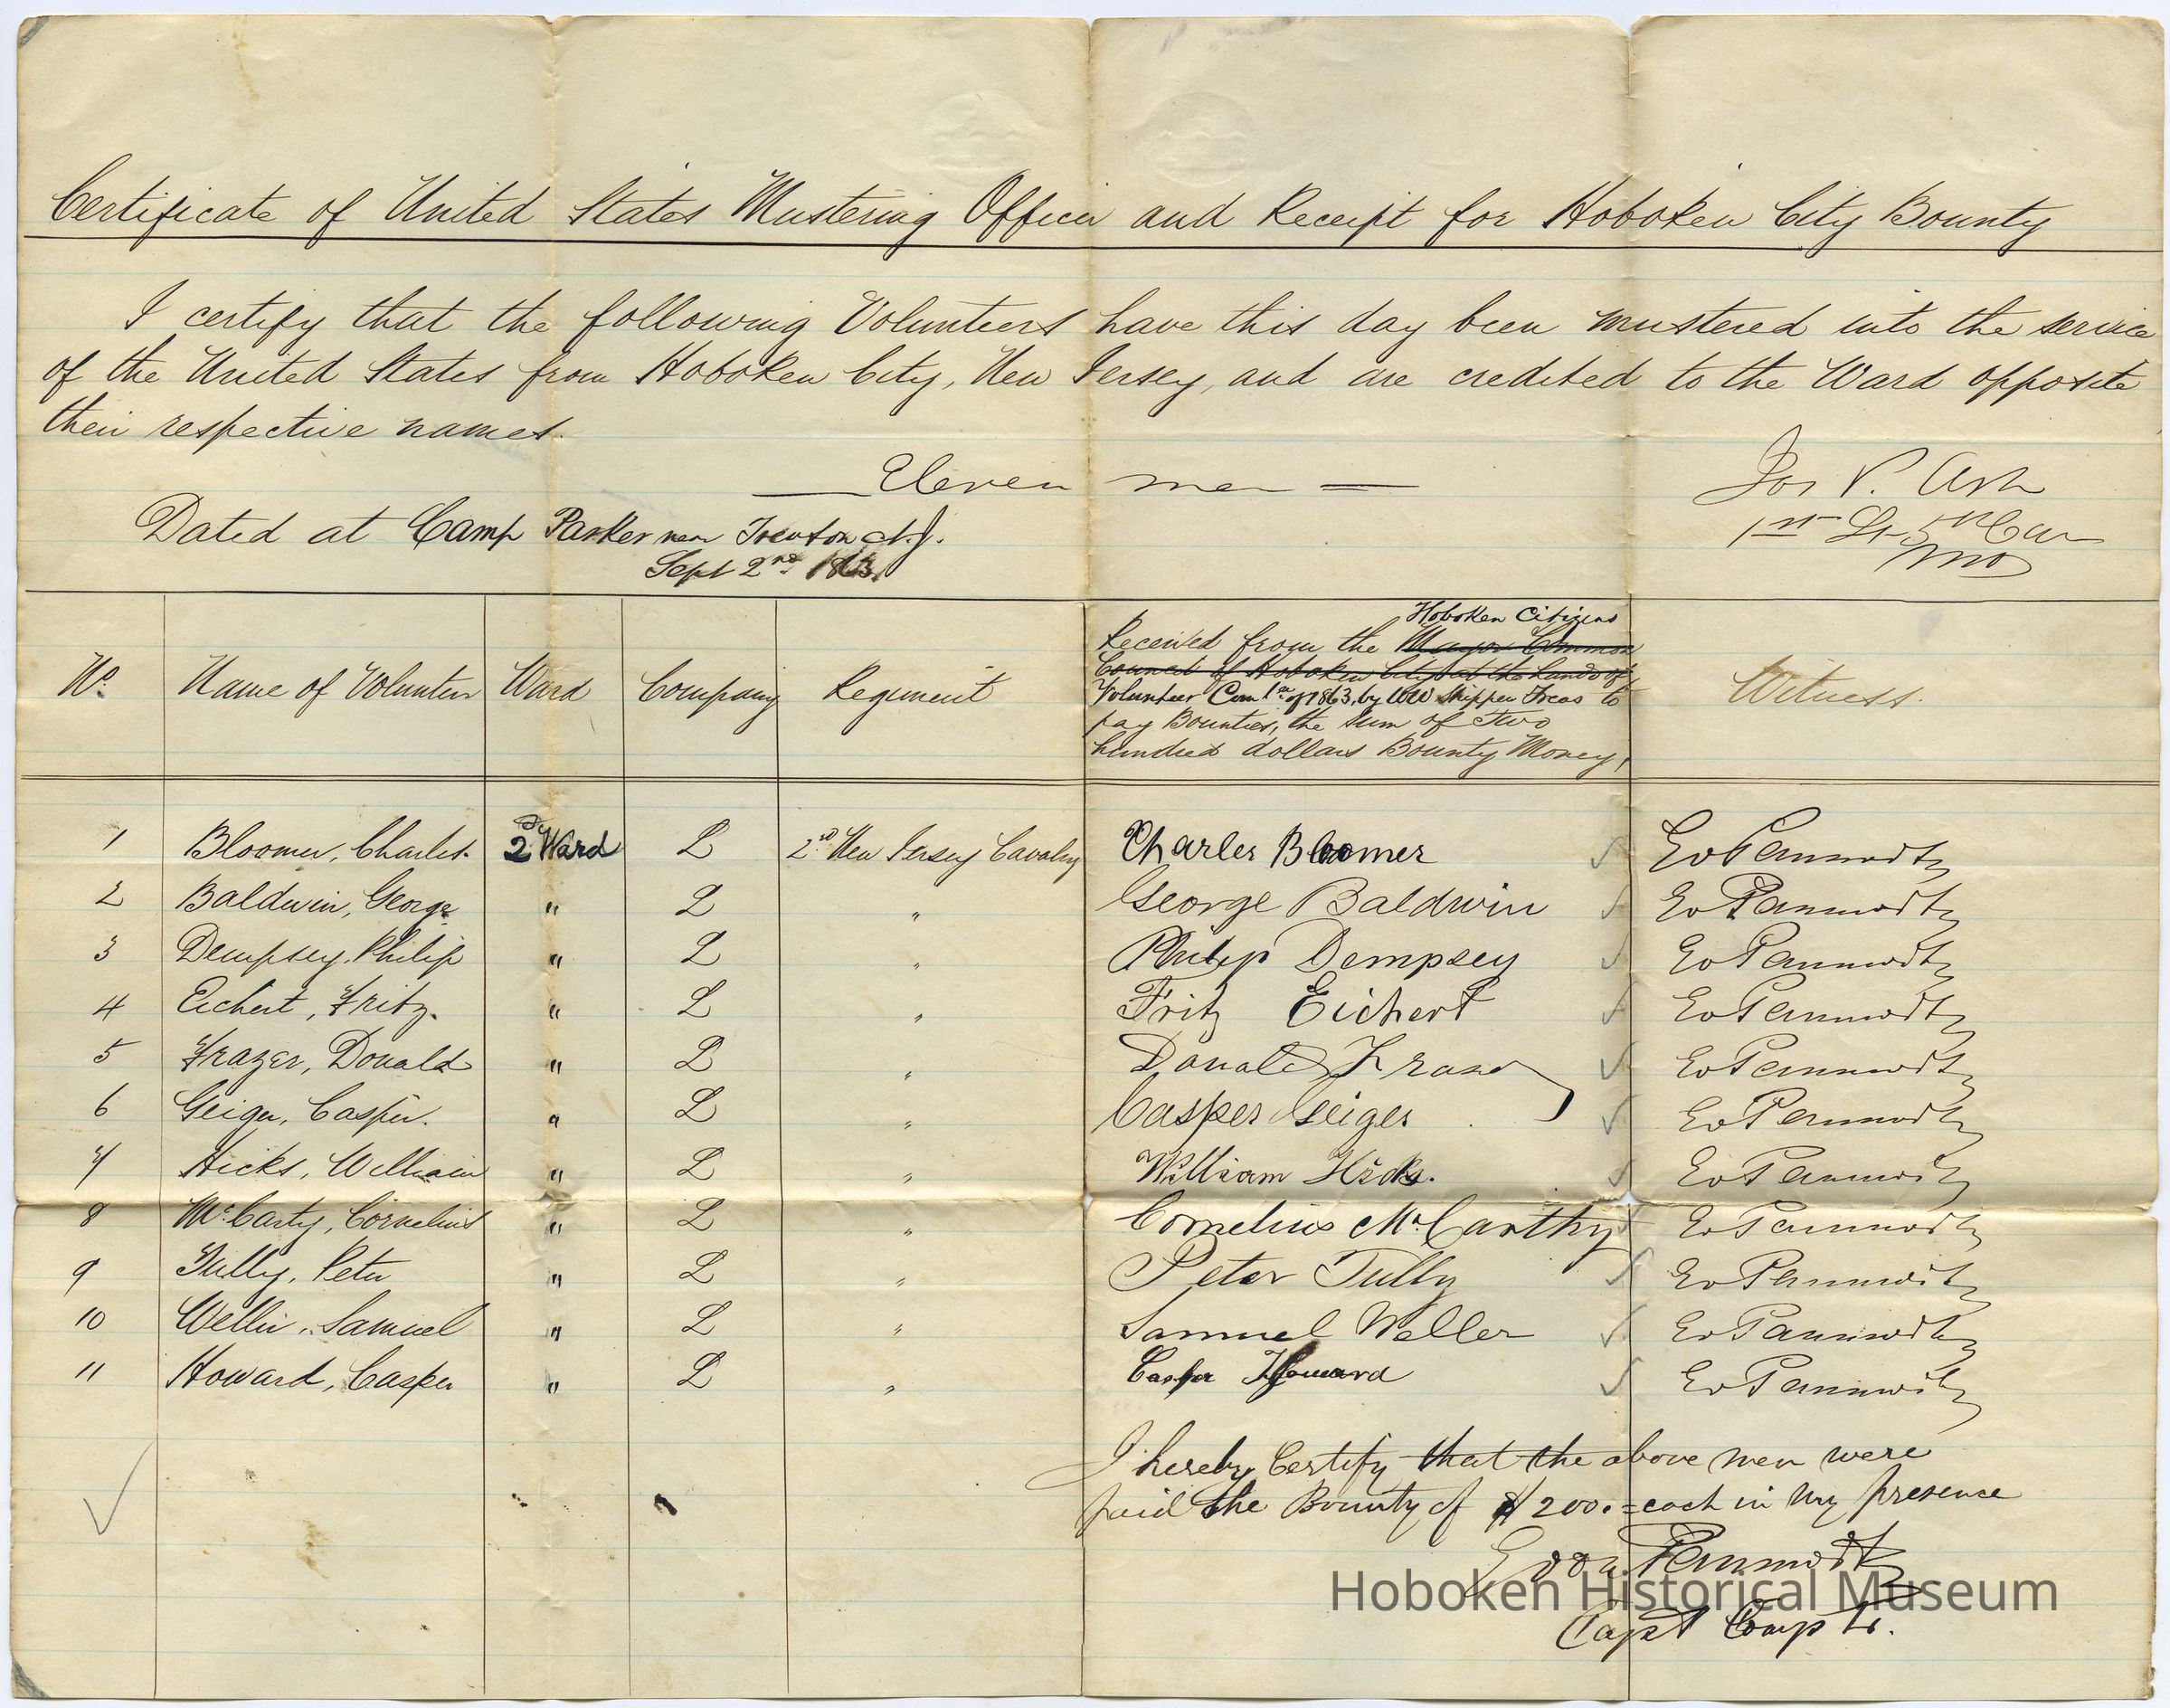 Certificate of United States Mustering Officer and Receipt for Hoboken City Bounty
I certify that the following Volunteers have this day been mustered into the service
of the United States from Hoboken City, New Jersey, and are credited to the Ward opposite
their respective names.
Eleven men
Jos P. Ash
1st Lt 5th Cav
MO
Dated at Camp Parker near Trenton N.J.
Sept 2nd 1863
No. Name of Volunteer Ward Company Regiment
Hoboken Citizens
Received from the Mayor Common
Council of Hoboken City at the hands of
Volunteer Com. of 1863, by WW Shippen Treas to
pay Bounties, the sum of Two
hundred dollars Bounty Money,
Witness.
1 Bloomer, Charles. 2d Ward L 2nd New Jersey Cavalry Charles Bloomer ✓ Ev Pannwitz
2 Baldwin, George " L " George Baldwin ✓ Ev Pannwitz
3 Dempsey, Philip " L " Philip Dempsey ✓ Ev Pannwitz
4 Eichert, Fritz. " L " Fritz Eichert ✓ Ev Pannwitz
5 Frazer, Donald " L " Donald Fraser ✓ Ev Pannwitz
6 Geiger, Casper. " L " Casper Geiger ✓ Ev Pannwitz
7 Hicks, William " L " William Hicks. ✓ Ev Pannwitz
8 McCarty, Cornelius " L " Cornelius McCarthy ✓ Ev Pannwitz
9 Tully, Peter " L " Peter Tully ✓ Ev Pannwitz
10 Weller, Samuel " L " Samuel Weller ✓ Ev Pannwitz
11 Howard, Casper " L " Casper Howard ✓ Ev Pannwitz
I hereby Certify that the above men were
paid the Bounty of $200.= each in my presence
Ev Pannwitz
Capt Comp L.
Hoboken Historical Museum